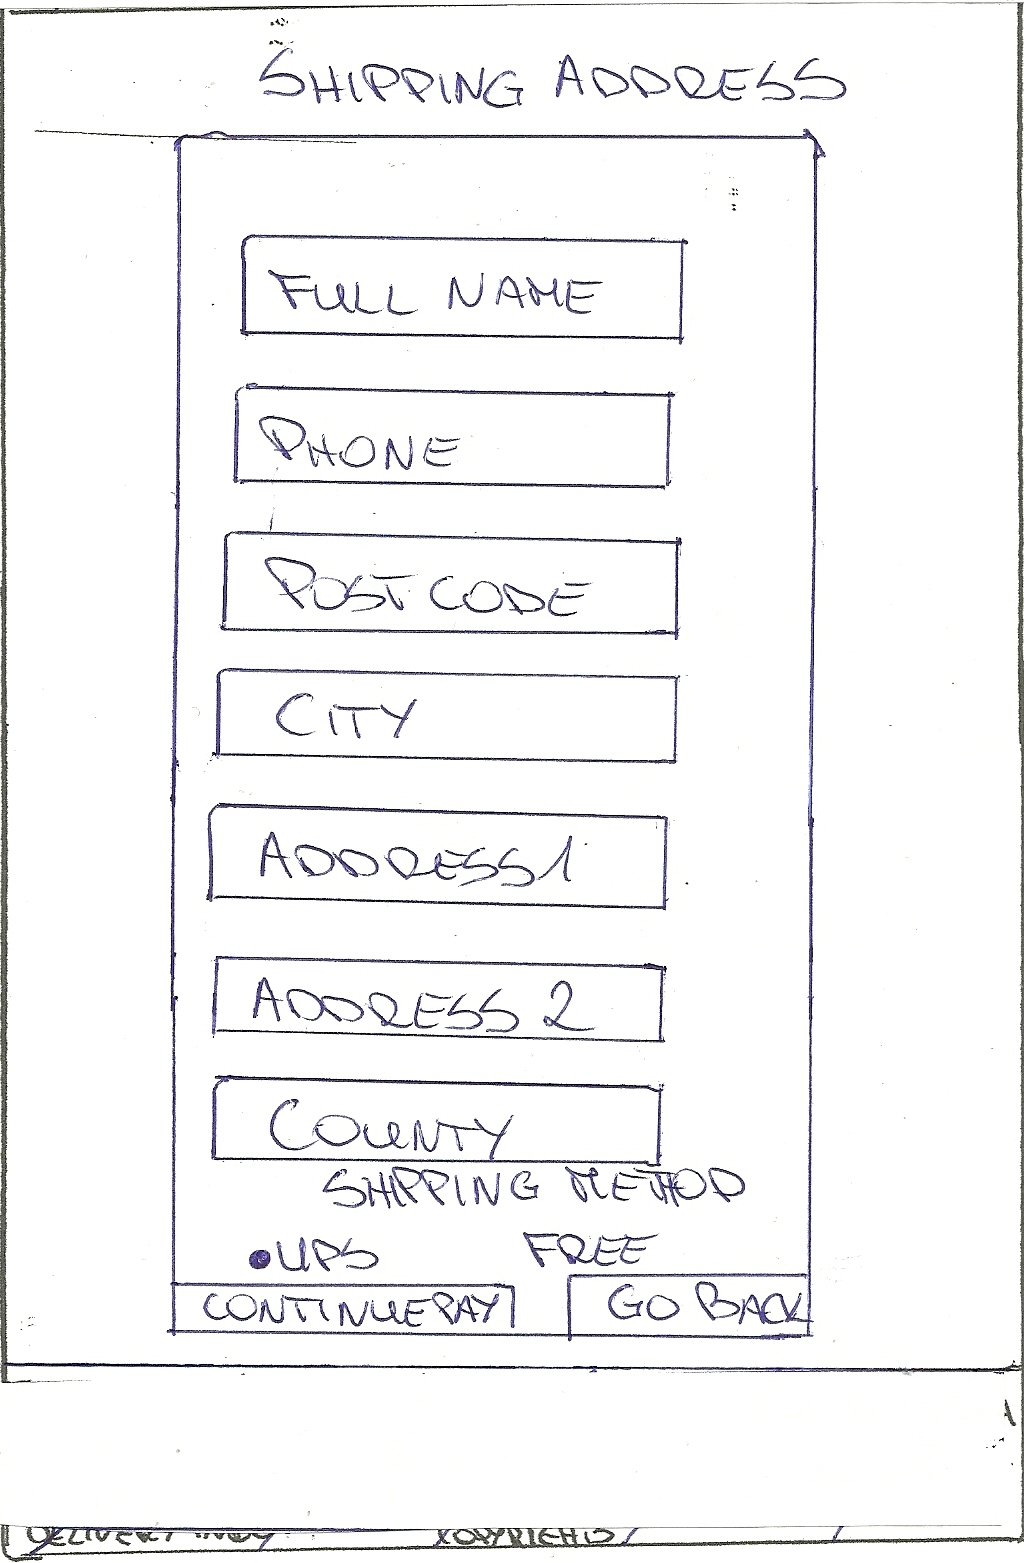 SHIPPING ADDRESS
FULL NAME
PHONE
POSTCODE
CITY
ADDRESS 1
ADDRESS 2
COUNTY
SHIPPING METHOD
UPS FREE
CONTINUE PAY GO BACK